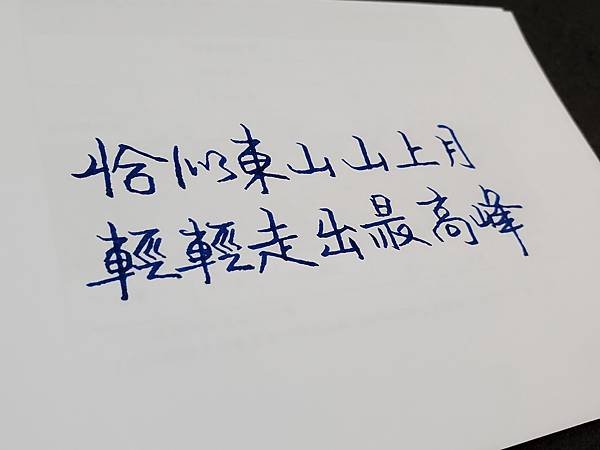 恰似東山山上月
輕輕走出最高峰